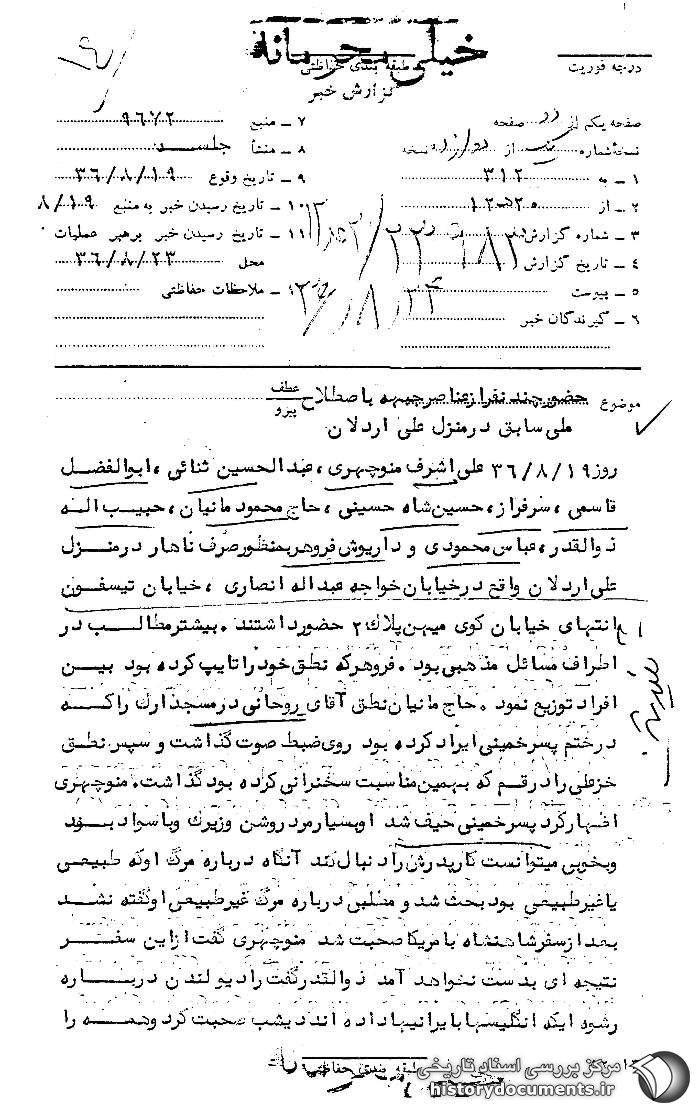 خیلی محرمانه
درجه فوریت
طبقه بندی حفاظتی
گزارش خبر
صفحه یکم از دو صفحه
نسخهٔ شماره یک از دوازده نسخه
۱ – به ۳۱۲
۲ – از ۲۵ه۱۲
۳ – شماره گزارش
۴ – تاریخ گزارش ۳۶/۸/۲۴
۵ – پیوست
۶ – گیرندگان خبر
۷ – منبع ۹۶۷۲
۸ – منشأ جلسه
۹ – تاریخ وقوع ۳۶/۸/۱۹
۱۰ – تاریخ رسیدن خبر به منبع ۸/۱۹
۱۱ – تاریخ رسیدن خبر برهبر عملیات
محل ۳۶/۸/۲۳
۱۲ – ملاحظات حفاظتی
موضوع حضور چند نفر از عناصر جبهه باصطلاح
عطف
پیرو
ملی سابق در منزل علی اردلان
روز ۳۶/۸/۱۹ علی اشرف منوچهری ، عبدالحسین ثنائی ، ابوالفضل
قاسمی ، سرفراز ، حسین شاه حسینی ، حاج محمود مانیان ، حبیب اله
ذوالقدر ، عباس محمودی و داریوش فروهر بمنظور صرف ناهار در منزل
علی اردلان واقع در خیابان خواجه عبداله انصاری ، خیابان تیسفون
انتهای خیابان کوی میهن پلاک ۲ حضور داشتند . بیشتر مطالب در
اطراف مسائل مذهبی بود . فروهر که نطق خود را تایپ کرده بود بین
افراد توزیع نمود . حاج مانیان نطق آقای روحانی در مسجد ارک را که
در ختم پسر خمینی ایراد کرده بود روی ضبط صوت گذاشت و سپس نطق
خزعلی را در قم که بهمین مناسبت سخنرانی کرده بود گذاشت . منوچهری
اظهار کرد پسر خمینی حیف شد او بسیار مرد روشن و زیرک و باسواد بود
و بخوبی میتوانست کار پدرش را دنبال کند آنگاه درباره مرگ او که طبیعی
یا غیر طبیعی بود بحث شد و مطلبی درباره مرگ غیر طبیعی او گفته نشد
بعد از سفر شاهنشاه بامریکا صحبت شد منوچهری گفت از این سفر
نتیجه ای بدست نخواهد آمد ذوالقدر گفت رادیو لندن درباره
رشوه ایکه انگلیسها بایرانیها داده اند دیشب صحبت کرد و همه را
طبقه بندی حفاظتی
مرکز بررسی اسناد تاریخی
historydocuments.ir